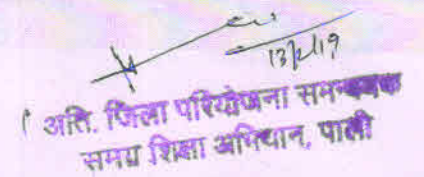 13/2/19
अति. जिला परियोजना समन्वयक
समग्र शिक्षा अभियान, पाली